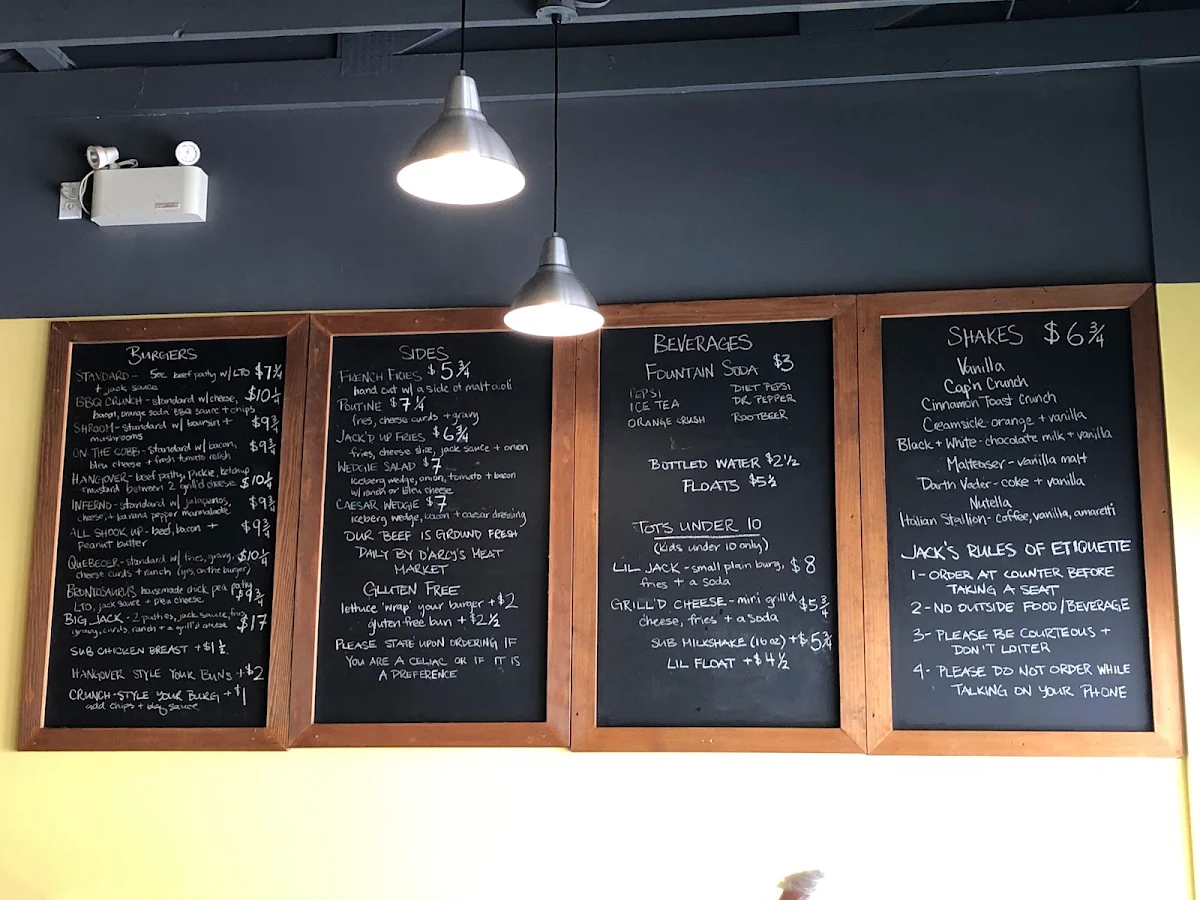 BURGERS
STANDARD - 5oz beef patty w/ LTO $7 3/4
+ jack sauce
BBQ CRUNCH - standard w/ cheese, $10 1/4
bacon, orange soda BBQ sauce + chips
SHROOM - standard w/ boursin + $9 3/4
mushrooms
ON THE COBB - standard w/ bacon, $9 3/4
bleu cheese + fresh tomato relish
HANGOVER - beef patty, pickle, ketchup
+ mustard between 2 grill'd cheese $10 1/4
INFERNO - standard w/ jalapenos, $9 3/4
cheese, + banana pepper marmalade
ALL SHOOK UP - beef, bacon + $9 3/4
peanut butter
QUEBECER - standard w/ fries, gravy, $10 1/4
cheese curds + ranch (yes, on the burger)
BRONTOSAURUS housemade chick pea patty
LTO, jack sauce + bleu cheese $9 3/4
BIG JACK - 2 patties, jack sauce, fries
gravy, curds, ranch + a grill'd cheese $17
SUB CHICKEN BREAST + $1 1/2
HANGOVER STYLE YOUR BUNS + $2
CRUNCH-STYLE YOUR BURG + $1
add chips + bbq sauce
SIDES
FRENCH FRIES $5 3/4
hand cut w/ a side of malt aioli
POUTINE $7 1/4
fries, cheese curds + gravy
JACK'D UP FRIES $6 3/4
fries, cheese slice, jack sauce + onion
WEDGIE SALAD $7
Iceberg wedge, onion, tomato + bacon
w/ ranch or bleu cheese
CAESAR WEDGIE $7
iceberg wedge, bacon + caesar dressing
OUR BEEF IS GROUND FRESH
DAILY BY D'ARCY'S MEAT
MARKET
GLUTEN FREE
lettuce 'wrap' your burger + $2
gluten-free bun + $2 1/2
PLEASE STATE UPON ORDERING IF
YOU ARE A CELIAC OR IF IT IS
A PREFERENCE
BEVERAGES
FOUNTAIN SODA $3
PEPSI DIET PEPSI
ICE TEA DR. PEPPER
ORANGE CRUSH ROOTBEER
BOTTLED WATER $2 1/2
FLOATS $5 1/2
TOTS UNDER 10
(kids under 10 only)
LIL JACK - small plain burg, $8
fries + a soda
GRILL'D CHEESE - mini grill'd $5 3/4
cheese, fries + a soda
SUB MILKSHAKE (16 oz) + $5 3/4
LIL FLOAT + $4 1/2
SHAKES $6 3/4
Vanilla
Cap'n Crunch
Cinnamon Toast Crunch
Creamsicle - orange + vanilla
Black + White - chocolate milk + vanilla
Malteaser - vanilla malt
Darth Vader - coke + vanilla
Nutella
Italian Stallion - coffee, vanilla, amaretti
JACK'S RULES OF ETIQUETTE
1 - ORDER AT COUNTER BEFORE
TAKING A SEAT
2 - NO OUTSIDE FOOD/BEVERAGE
3 - PLEASE BE COURTEOUS +
DON'T LOITER
4 - PLEASE DO NOT ORDER WHILE
TALKING ON YOUR PHONE